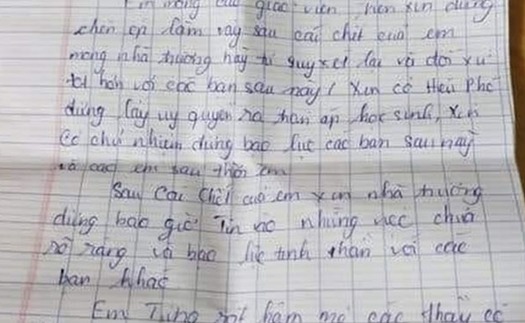 giáo viên, nên xin đừng
chèn ép lắm vậy sau cái chết của em
mong nhà trường hãy lại và đối xử
tốt hơn với các bạn sau này! Xin cô Hiệu Phó
đừng lấy uy quyền ra đàn áp học sinh, xin
cô chủ nhiệm đừng bạo lực các bạn sau này
và các em sau thôi em
Sau cái chết của em xin nhà trường
đừng bao giờ tin vào những việc chưa
rõ ràng và bạo lực tinh thần với các
bạn khác
Em Từng rất các thầy cô